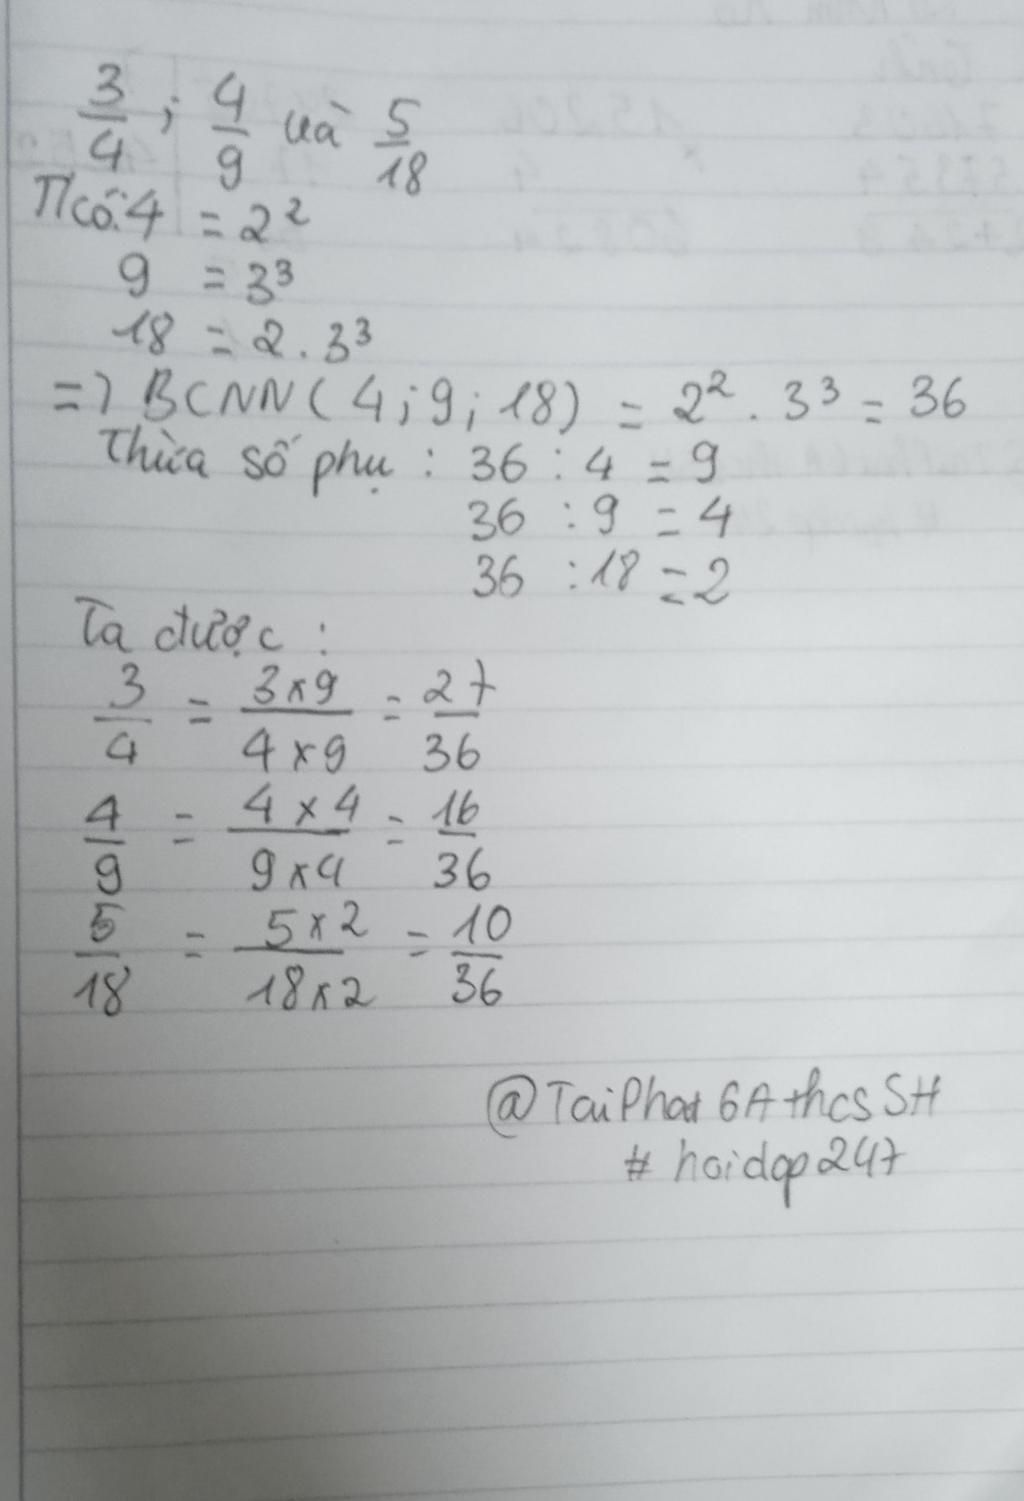 3/4 ; 4/9 và 5/18
Tcó: 4 = 2²
9 = 3³
18 = 2 . 3³
=> BCNN( 4 ; 9 ; 18 ) = 2² . 3³ = 36
Thừa số phụ : 36 : 4 = 9
36 : 9 = 4
36 : 18 = 2
Ta được :
3/4 = 3x9/4x9 = 27/36
4/9 = 4x4/9x4 = 16/36
5/18 = 5x2/18x2 = 10/36
@TaiPhat 6A thcs SH
# hoidap247